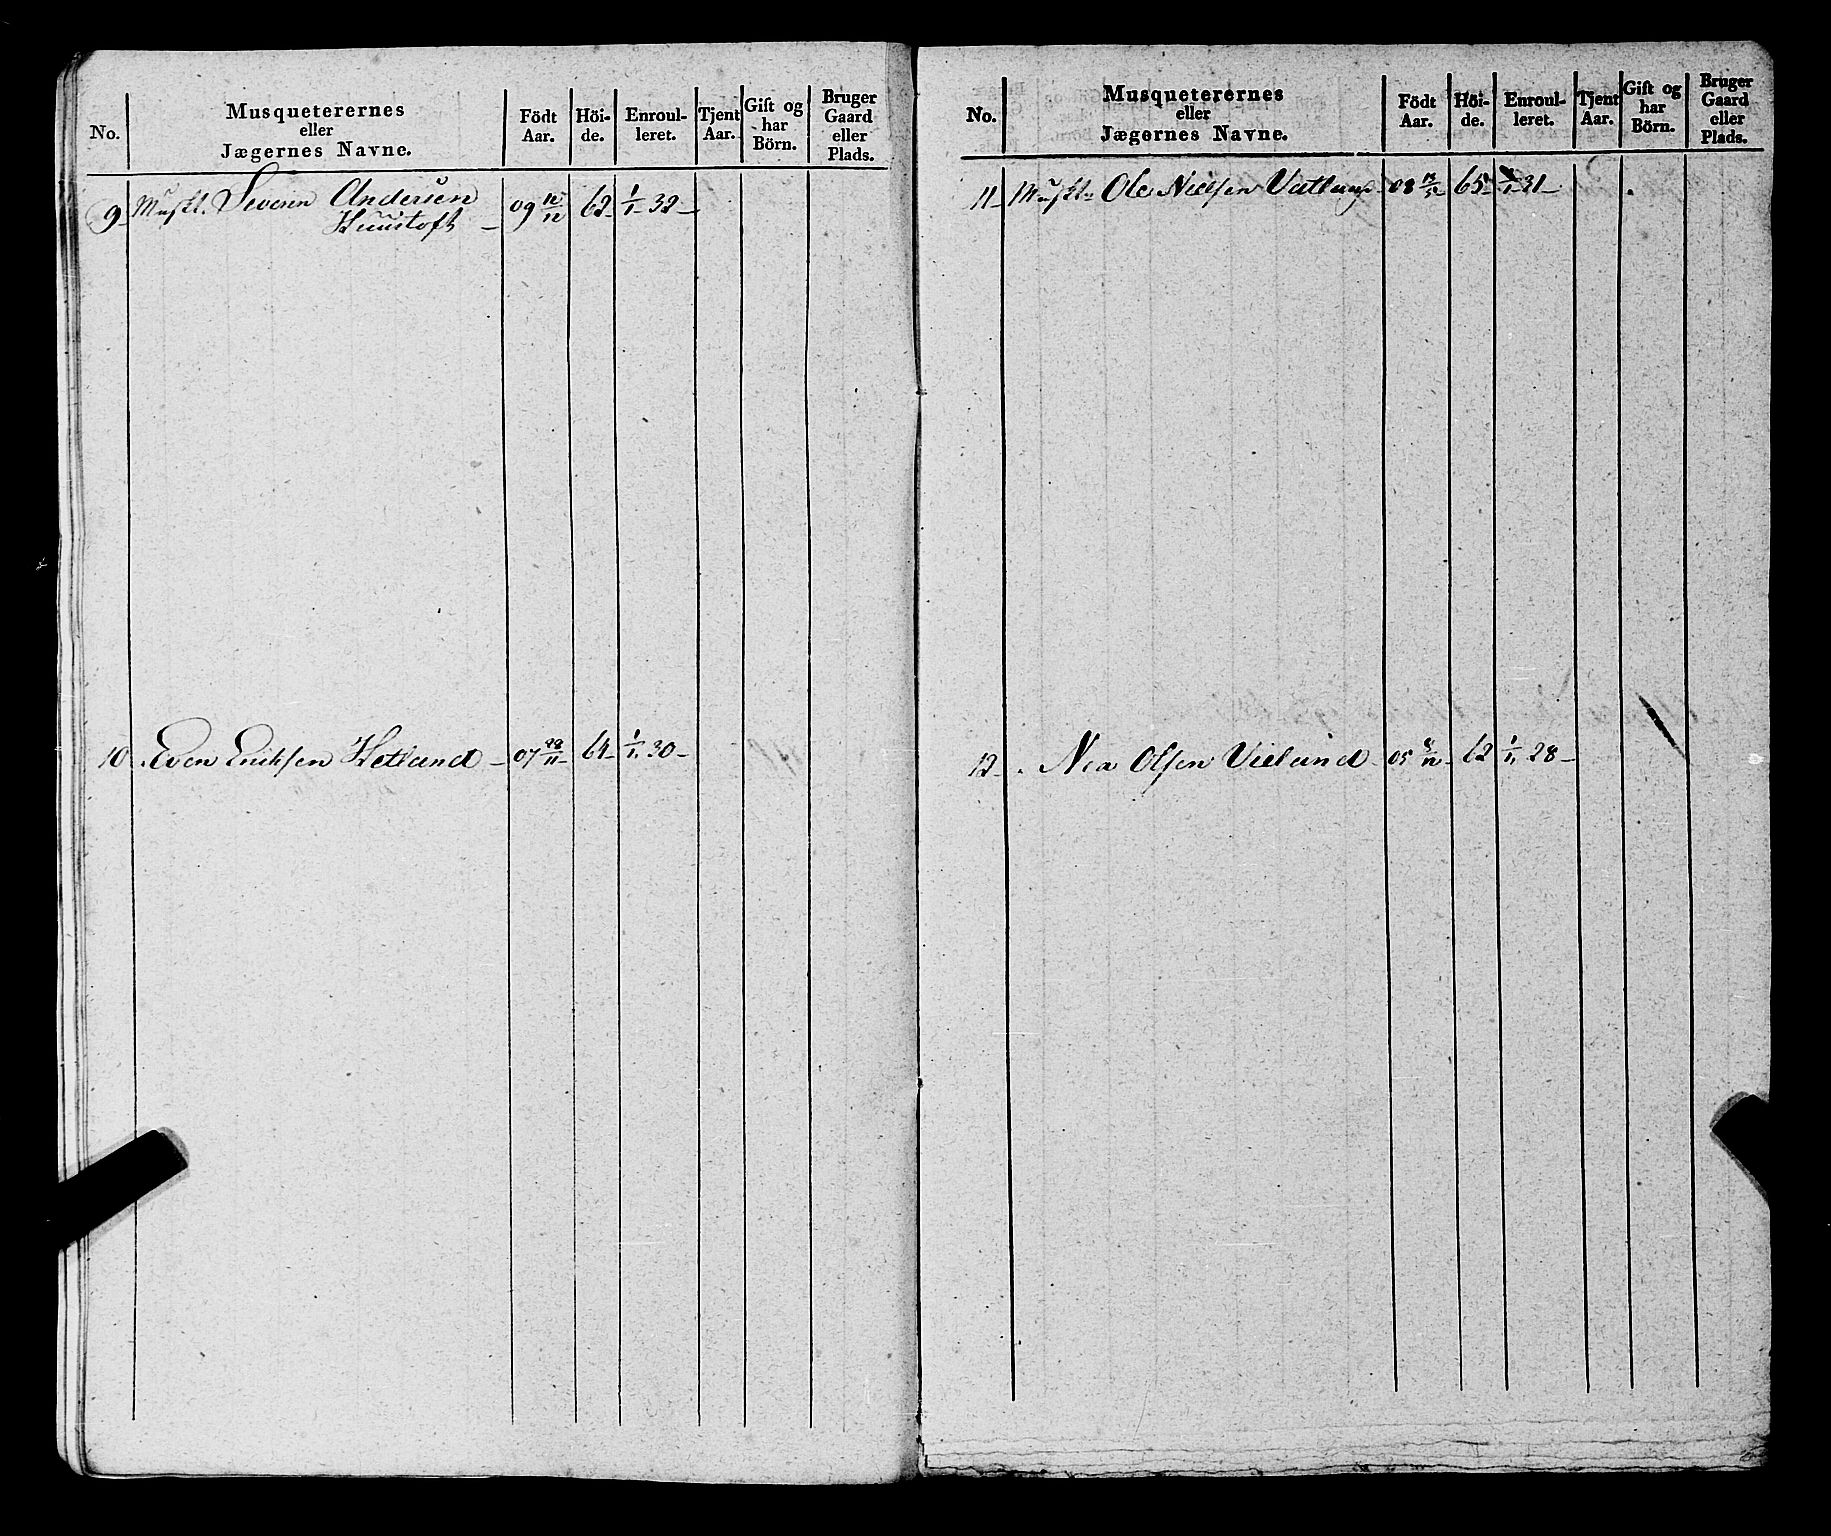 No.
Musqueterernes
eller
Jægernes Navne.
Födt
Aar.
Höi-
de.
Enroul-
leret.
Tjent
Aar.
Gift og
har
Börn.
Bruger
Gaard
eller
Plads.
9 Muskt. Severin Andersen 09 12/12 62 1/1 32
10 Even Eriksen Hetland 07 28/11 64 1/1 30
No.
Musqueterernes
eller
Jægernes Navne.
Födt
Aar.
Höi-
de.
Enroul-
leret.
Tjent
Aar.
Gift og
har
Börn.
Bruger
Gaard
eller
Plads.
11 Muskt. Ole Nielsen 08 65 31
12 Olsen 05 62 1/1 28